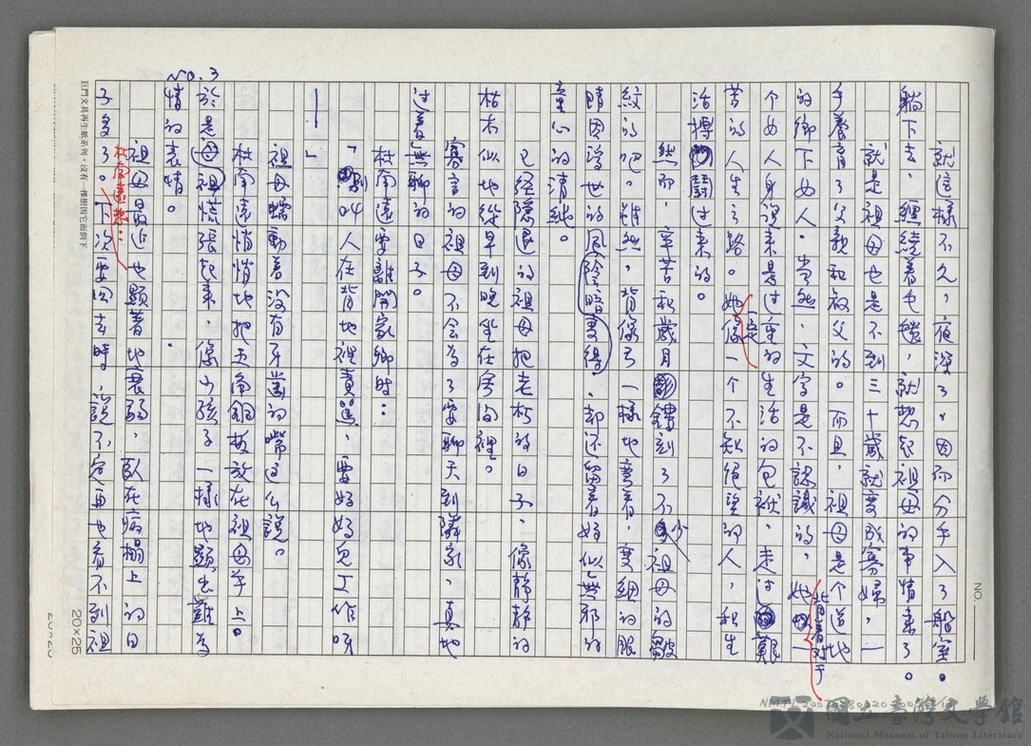 就這樣不久，夜深了。因而分手入了船室。
躺下去，纏繞着毛毯，就想起祖母的事情來了。
就是祖母也是不到三十歲就变成寡婦，一
手養育了父親和叔父的。而且，祖母是个道地
的鄉下女人。当然，文字是不認識的，她一
背着对于
个女人身說来是过重的生活的包袱，走过艱
苦的人生之路。她像一个不知絕望的人，和生
一定
活搏鬪过来的。
然而，辛苦和歲月鏤刻了不少祖母的皺
紋的吧。雖然，背像弓一樣地弯着，变細的眼
睛因浮世的風陰暗变得，却还留着好似無邪的
童心的清純。
已經隱退的祖母把老朽的日子，像靜靜的
枯木似地從早到晚坐在舍间裡。
寡言的祖母不会为了要聊天到隣家，真地
过着無聊的日子。
杜南遠要離開家鄉時：
「別叫人在背地裡責罵，要好好兒工作呀
——」
祖母蠕動着沒有牙齒的嘴这么說。
杜南遠悄悄地把五角銅板放在祖母手上。
於是祖母慌張起来，像小孩子一樣地顯出難为
情的表情。
祖母最近也顯著地衰弱，臥在病榻上的日
子多了。下次要回去時，說不定再也看不到祖
杜南遠想：
No. 3
NO.
20×25
巨門文具再生紙系列・沒有一棵樹因它而倒下
國立臺灣文學館
National Museum of Taiwan Literature